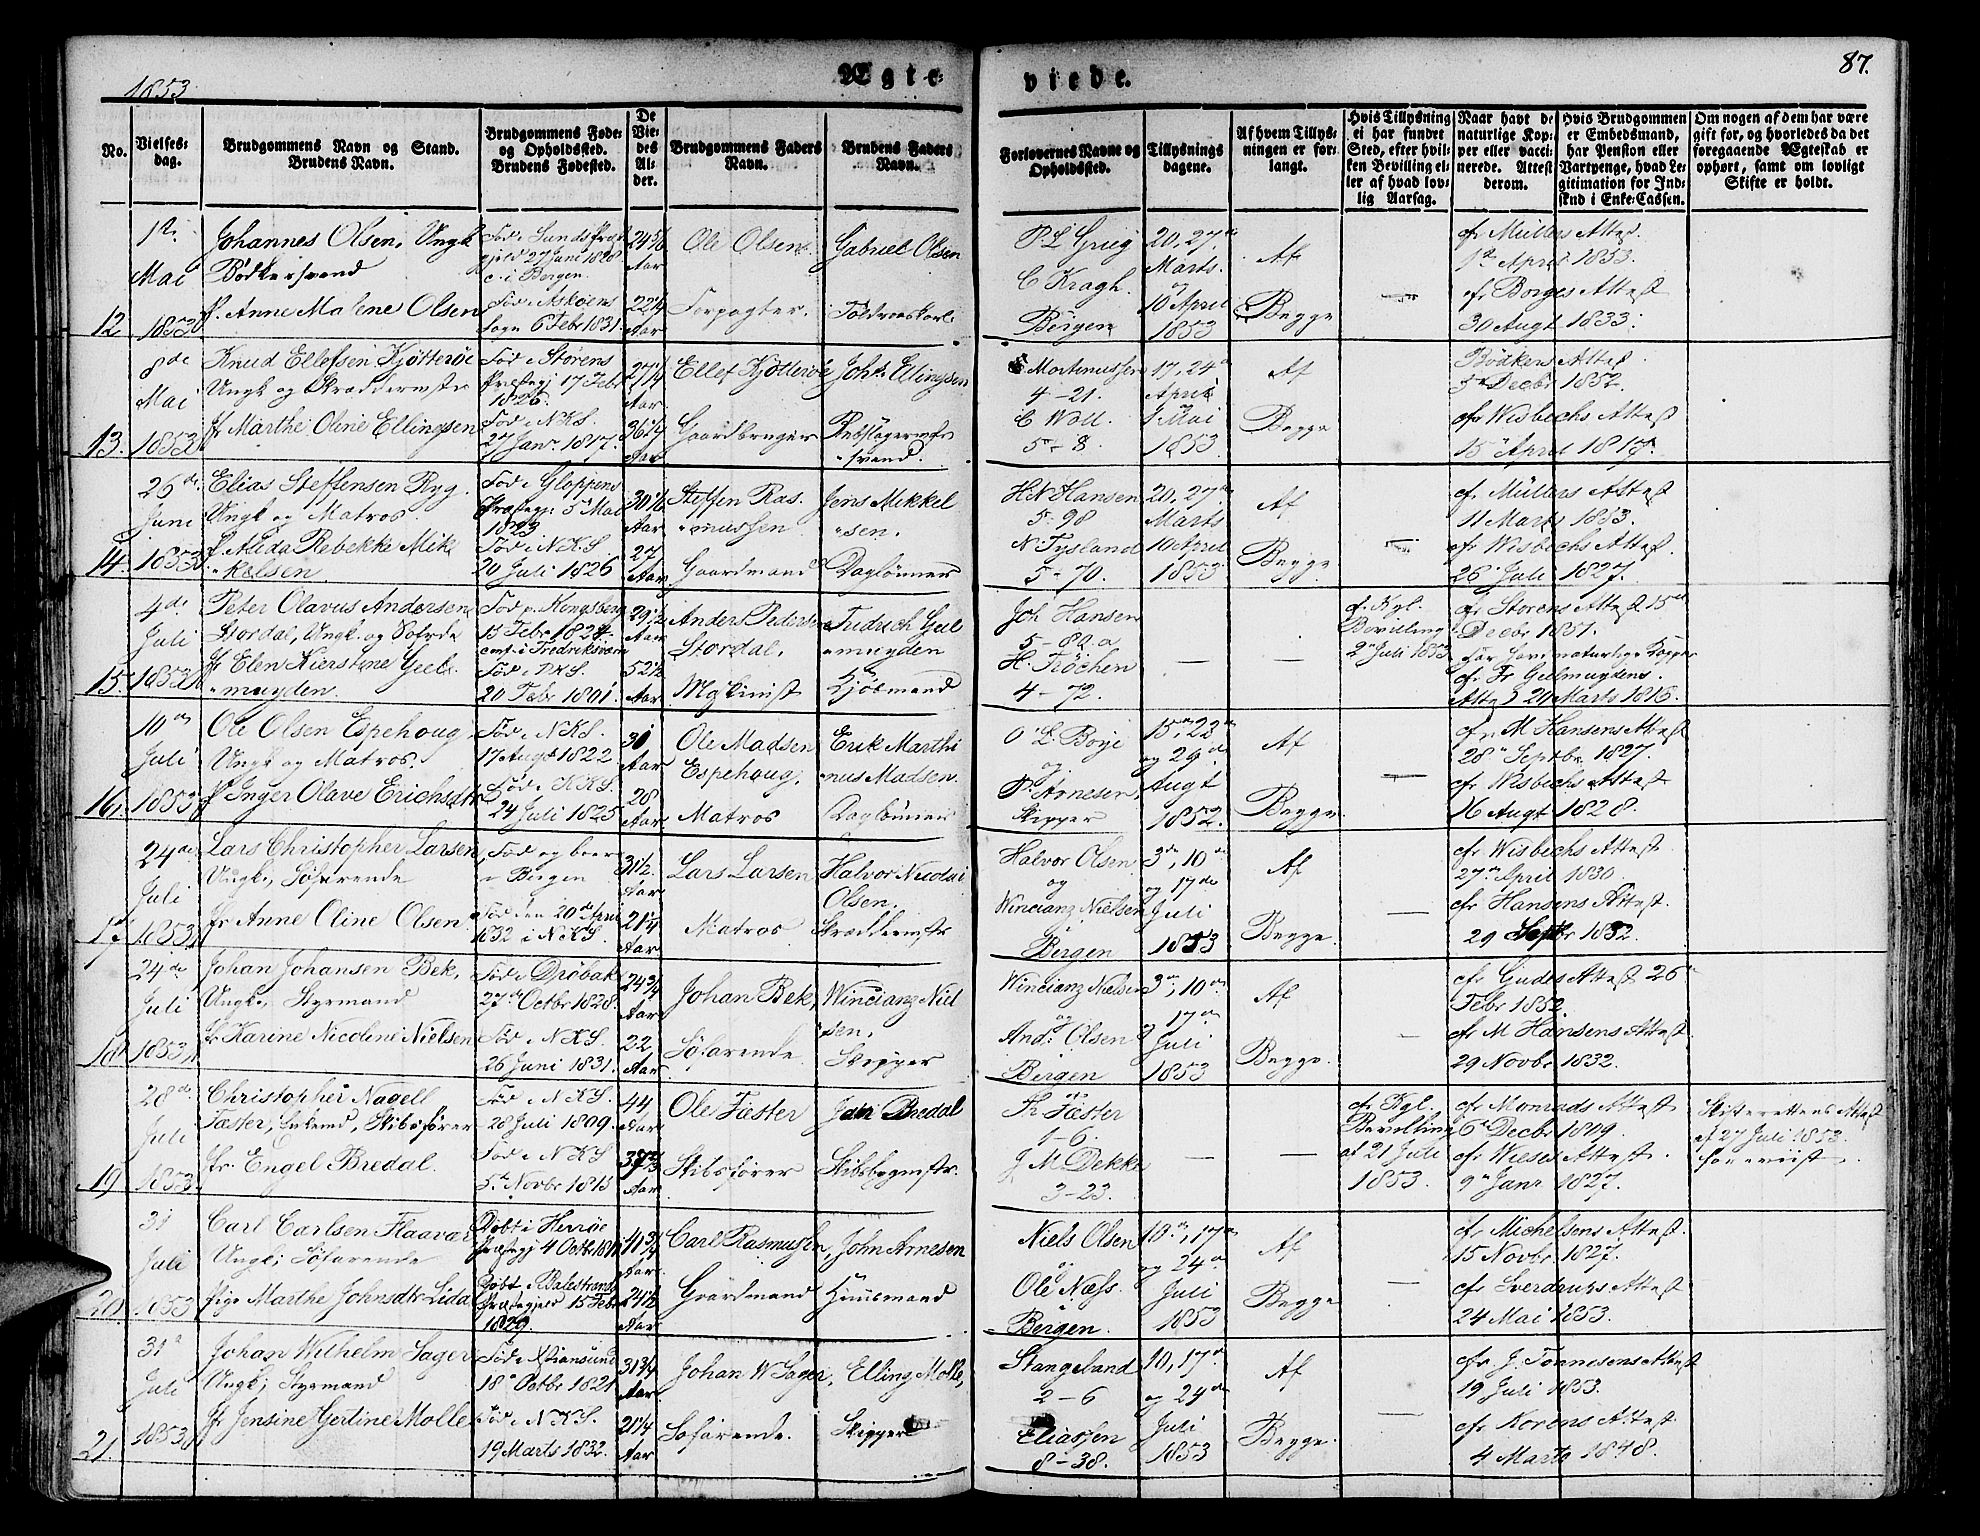 1853
Ægte-
viede.
87.
No.
Vielses-
dag.
Brudgommens Navn og Stand.
Brudens Navn.
Brudgommens Føde-
og Opholdssted.
Brudens Fødested.
De
Vie-
des
Al-
der.
Brudgommens Faders
Navn.
Brudens Faders
Navn.
Forlovernes Navne og
Opholdssted.
Tillysnings
dagene.
Af hvem Tillys-
ningen er for-
langt.
Hvis Tillysning
ei har fundet
Sted, efter hvil-
ken Bevilling el-
ler af hvad lov-
lig Aarsag.
Naar havt de
naturlige Kop-
per eller vacci-
nerede. Attest
derom.
Hvis Brudgommen
er Embedsmand,
har Pension eller
Vartpenge, hvad Le-
gitimation for Ind-
skud i Enke-Cassen.
Om nogen af dem har være
gift før, og hvorledes da det
foregaaende Ægteskab er
ophørt, samt om lovligt
Skifte er holdt.
12
1ste
Mai
1853
Johannes Olsen, Ungk
Bødkersvend
P. Anne Malene Olsen
Fød i Sunds Præ
gjeld 27 Juni 1828
c. i Bergen
Fød i Askøens
Sogn 6 Febr 1831.
24 5/6
Aar
22 1/4
Aar
Ole Olsen
Forpagter.
Gabriel Olsen
Toldroerskarl
P L Grieg
C Kragh.
Bergen
20, 27de
Marts.
og
10 April
1853
Af
Begge
cfr Müllers Attest
1ste April 1853.
cfr Borges Attest
30 Augt 1833.
13.
8de
Mai
1853
Knud Ellefsen Kjøtterøe
Ungk og Skræddermstr
Jfr Marthe Oline Ellingsen
Fød i Størens
Præstegj 17 Febr
1826.
Fød i N.K.S.
27 Janr. 1817.
27 1/4
Aar.
36 1/4
Aar
Ellef Kjøtterøe
Gaardbruger
Johs. Ellingsen
Rebslagerm
svend.
Mortinussen
4-21.
C Woll.
5-8
17, 24de
April
1 Mai
1853
Af
Begge
Bødkers Attest
5te Decbr 1852.
cfr Wisbechs Attest
15de April 1817.
14.
26de
Juni
1853
Elias Steffensen Ryg.
Ungk og Matros.
P. Alida Rebekke Mik
kelsen.
Fød i Gloppens
Præstegj. 5 Mai
1823
Fød i N.K.S
20 Juli 1826
30 1/6
Aar
27
Aar
Steffen Ras
mussen
Gaardmand
Jens Mikkel
sen.
Dagleiner
H.N. Hansen
5-98
N. Tysland
5-70.
20, 27de
Marts
10 April
1853
Af
Begge
cfr Müllers Attest
11 Marts 1853.
cfr Wisbechs Attest.
26 Juli 1827.
15.
4de
Juli
1853
Peter Olavus Andersen
Stordal, Ungk. og
Jfr Elen Kierstine Geel
muyden.
Fød p. Kongsberg
15 Febr 1824
conf. i Fredriksværn
Fød i D.K.S.
20 Febr 1801.
29 1/2
Aar
52 1/2
Aar
Anders Pedersen
Stordal,
Fredrich Geel
muyden
Kjøbmand
Joh Hansen
5-82 a
H. Frøchen
4-72.
cf. Kgl.
Bevilling
2 Juli 1853
cfr Størens Attest 15de
Decbr 1851.
har havt naturlige Kopper
cfr Fr Geelmuydens
Attest 24 Marts 1816.
16.
10de
Juli
1853
Ole Olsen Espehoug
Ungk og Matros.
P. Inger Olave Erichsdtr
Fød i N.K.S.
17 Augt 1822
Fød i K.K.S.
24 Juli 1825
31
Aar
28
Aar
Ole Madsen
Espehoug,
Matros
Erik Marthi
nus Madsen.
Dagleiner
O L. Borge
og
P. Arnesen
Skipper
15de, 22de
og 29de
Augt
1852.
Af
Begge.
cfr. M Hansens Attest
28de Septbr 1827.
cfr Wisbechs Attest
16 Augt 1828.
17
24de
Juli
1853
Lars Christopher Larsen
Ungk., Søfarende
Jfr Anne Oline Olsen
Fød og boer
i Bergen
Fød den 20de April
1832 i N.K.S.
31 1/2.
Aar
21 1/4
Aar
Lars Larsen
Matros
Halvor Nicolai
Olsen.
Skræddermstr
Halvor Olsen
og
Wincianz Nielsen
Bergen
3de, 10de
og 17de
Juli
1853
Af
Begge.
cfr Wisbechs Attest.
27de April 1830.
cfr Hansens Attest.
29 Septbr 1832.
18
24de
Juli
1853
Johan Johansen Bek,
Ungk., Styrmand
Jfr Karine Nicoline Nielsen
Fød i Drøbak
27de Octbr 1828.
Fød i N.K.S
26 Juni 1831.
24 3/4
Aar
22
Aar
Johan Bek,
Søfarende
Wincianz Niel
sen,
Skipper
Wincianz Nielsen
og
And. Olsen
Bergen
3de, 10de
og 17de
Juli
1853
Af
Begge.
cfr Gudes Attest 26de
Febr 1852.
cfr M Hansens Attest
29 Novbr 1832.
19
28de
Juli
1853.
Christopher Nagell
Fæster, Enkemd, Skibsfører
Jfr. Engel Bredal.
Fød i N.K.S
28 Juli 1809.
Fød i N.K.S
5te Novbr 1815
44
Aar
37 2/3
Aar
Ole Fæster
Skibsfører
Jan Bredal
Skibsbygmstr.
Fr Fæster
1-6.
J M Dekke
3-23.
cfr Kgl.
Bevilling
af 21 Juli
1853.
cfr Monrads Attest
6te Decbr 1849.
cfr Wieses Attest.
9de Janr 1827.
Skifterettens Attest
af 27 Juli 1853.
foreviist
20
31
Juli
1853
Carl Carlsen Flaavær
Ungk; Søfarende
Pige Marthe Johnsdtr Lida
Døbt i Herrøe
Præstegj 4 Octbr 1811
Døbt i Balestrands
Præstegjeld 15 Febr
1829.
41 3/4
Aar.
24 1/2
Aar
Carl Rasmusen,
Gaardmand
John Arnesen
Huusmand
Niels Olsen
og
Ole Næss.
Bergen.
10de, 17de
og 24de
Juli
1853
Af
Begge
cfr Michelsens Attest.
15 Novbr 1827.
cfr Sverdrups Attest
24 Mai 1853.
21.
31te
Juli
1853
Johan Wilhelm Sager
Ungk; Styrmand
Jfr Jensine Gjertine Molle
Fød i Xtiansund
18de Octbr 1821
Fød i N.K.S.
19 Marts 1832.
31 3/4
Aar
21 1/4
Aar
Johan W Sager,
Søfarende.
Elling Molle,
Skipper
Stangeland
2-6
Eliassen
8-38.
10, 17de
og 24de
Juli
1853
Af
Begge.
cfr J. Tønnesens Attest
19 Juli 1853.
cfr Korens Attest.
4 Marts 1848.